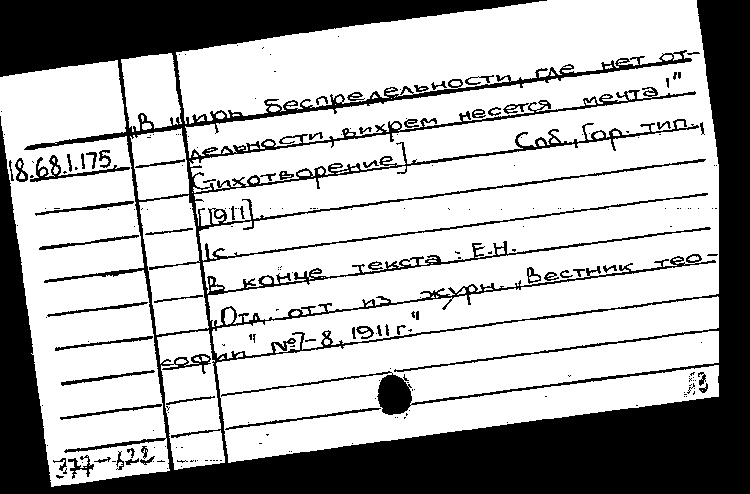 „В ширь беспредельности, где нет от-
дельности, вихрем несется мечта!"
18.68.1.175.
[Стихотворение]. Спб., Гор. тип.,
[1911].
1с.
В конце текста: Е.Н.
„Отд. отт. из журн. „Вестник тео-
софии" №7-8, 1911 г."
377-622